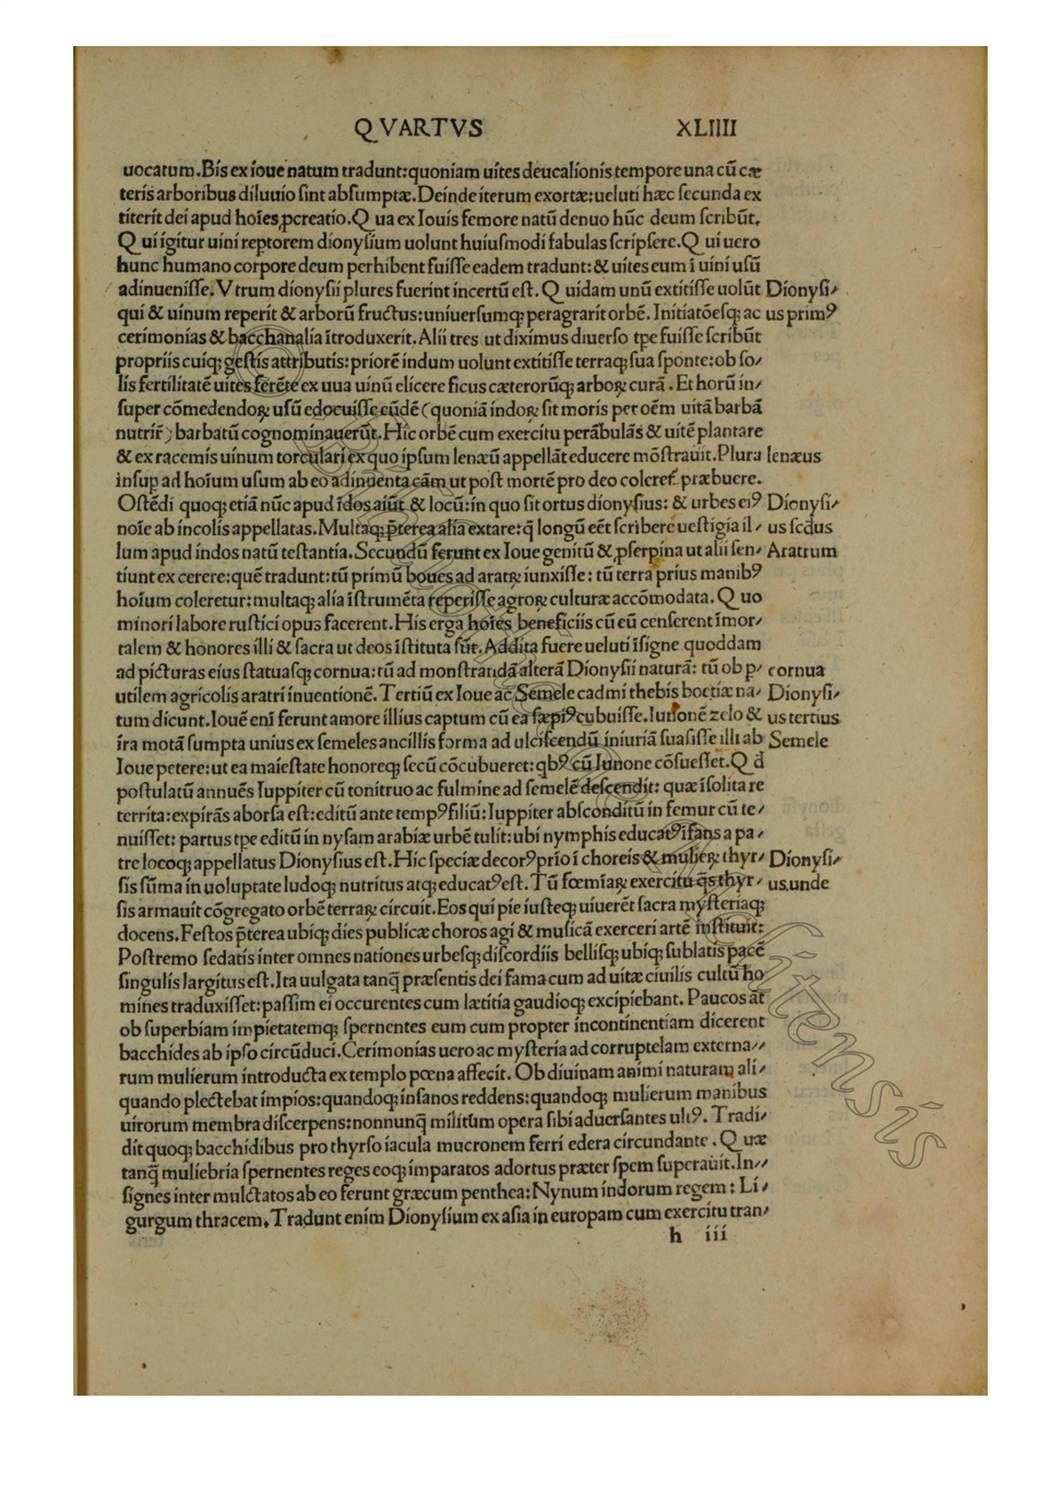 QVARTVS XLIIII
uocatum.Bis ex ioue natum tradunt:quoniam uites deucalionis tempore una cū cæ
teris arboribus diluuio sint absumptæ.Deinde iterum exortæ:ueluti hæc secunda ex
titerit dei apud hoīes ꝓcreatio.Qua ex Iouis femore natū denuo hūc deum scribūt.
Qui igitur uini reptorem dionysium uolunt huiusmodi fabulas scripsere.Qui uero
hunc humano corpore deum perhibent fuisse eadem tradunt:& uites eum ī uini usū
adinuenisse.Vtrum dionysii plures fuerint incertū est.Quidam unū extitisse uolūt Dionysi/
qui & uinum reperit & arborū fructus:uniuersumqꝫ peragrarit orbē. Initiatōesqꝫ ac us primꝰ
cerimonias & bacchanalia ītroduxerit.Alii tres ut diximus diuerso tp̄e fuisse scribūt
propriis cuiqꝫ gestis attributis:priorē indum uolunt extitisse terraqꝫ sua sponte:ob so/
lis fertilitatē uites ferēte ex uua uinū elicere ficus cæterorūqꝫ arboꝝ curā.Et horū in/
super cōmedendoꝝ usū edocuisse eūdē (quoniā indoꝝ sit moris per oēm uitā barbā
nutrir̄) barbatū cognominauerūt.Hic orbē cum exercitu perābulās & uitē plantare
& ex racemis uinum torculari ex quo ipsum lenæū appellāt educere mōstrauit.Plura lenæus
insup ad hoium usum ab eo adinuenta cām ut post mortē pro deo coleret̄ præbuere.
Ostēdi quoqꝫ etiā nūc apud īdos aiūt & locū:in quo sit ortus dionysius: & urbes eiꝰ Dionysi/
noīe ab incolis appellatas.Multaqꝫ p̄terea alia extare:q̄ longū eēt scribere uestigia il/ us scdus
lum apud indos natū testantia.Secundū ferunt ex Ioue genitū & ꝓserpina ut alii sen/ Aratrum
tiunt ex cerere:quē tradunt:tū primū boues ad aratꝝ iunxisse: tū terra prius manibꝰ
hoīum coleretur:multaqꝫ alia īstrumēta reperisse agroꝝ culturæ accōmodata.Quo
minori labore rustici opus facerent.His erga hoīes beneficiis cū eū censerent īmor/
talem & honores illi & sacra ut deos īstituta sūt.Addita fuere ueluti īsigne quoddam
ad picturas eius statuasqꝫ cornua:tū ad monstrandā alterā Dionysii naturā: tū ob p/ cornua
utilem agricolis aratri inuentionē.Tertiū ex Ioue ac Semele cadmi thebis boetiæ na/ Dionysi/
tum dicunt.Iouē enī ferunt amore illius captum cū ea sæpiꝰ cubuisse.Iunonē zelo & us tertius
ira motā sumpta unius ex semeles ancillis forma ad ulciscendū iniuriā suasisse illi ab Semele
Ioue petere:ut ea maiestate honoreqꝫ secū cōcubueret:qbꝰ cū Iunone cōsuesset.Qd̄
postulatū annuēs Iuppiter cū tonitruo ac fulmine ad semelē descendit: quæ īsolita re
territa:expirās aborsa est:editū ante tempꝰ filiū:Iuppiter absconditū in femur cū te/
nuisset: partus tp̄e editū in nysam arabiæ urbē tulit:ubi nymphis educatꝰ īfans a pa/
tre locoqꝫ appellatus Dionysius est.Hic speciæ decorꝰ prīo ī choreis & mulieꝝ thyr/ Dionysi/
sis sūma in uoluptate ludoqꝫ nutritus atqꝫ educatꝰ est.Tū fœmīaꝝ exercitu q̄s thyr/ us unde
sis armauit cōgregato orbē terraꝝ circuit.Eos qui pie iusteqꝫ uiuerēt sacra mysteriaqꝫ
docens.Festos p̄terea ubiqꝫ dies publicæ choros agi & musicā exerceri artē instituit:
Postremo sedatis inter omnes nationes urbesqꝫ discordiis bellisqꝫ ubiqꝫ sublatis pacē
singulis largitus est.Ita uulgata tanq̄ præsentis dei fama cum ad uitæ ciuilis cultū ho
mines traduxisset:passim ei occurentes cum lætitia gaudioqꝫ excipiebant.Paucos āt
ob superbiam impietatemqꝫ spernentes eum cum propter incontinentiam dicerent
bacchides ab ipso circūduci.Cerimonias uero ac mysteria ad corruptelam externa//
rum mulierum introducta extemplo pœna affecit.Ob diuinam animi naturam ali/
quando plectebat impios:quandoqꝫ insanos reddens:quandoqꝫ mulierum manibus
uirorum membra discerpens:nonnunq̄ militum opera sibi aduersantes ultꝰ.Tradi/
dit quoqꝫ bacchidibus pro thyrso iacula mucronem ferri edera circundante.Quæ
tanq̄ muliebria spernentes reges eoqꝫ imparatos adortus præter spem superauit.In//
signes inter mulctatos ab eo ferunt græcum penthea:Nynum indorum regem:Li/
gurgum thracem.Tradunt enim Dionysium ex asia in europam cum exercitu tran/
h iii